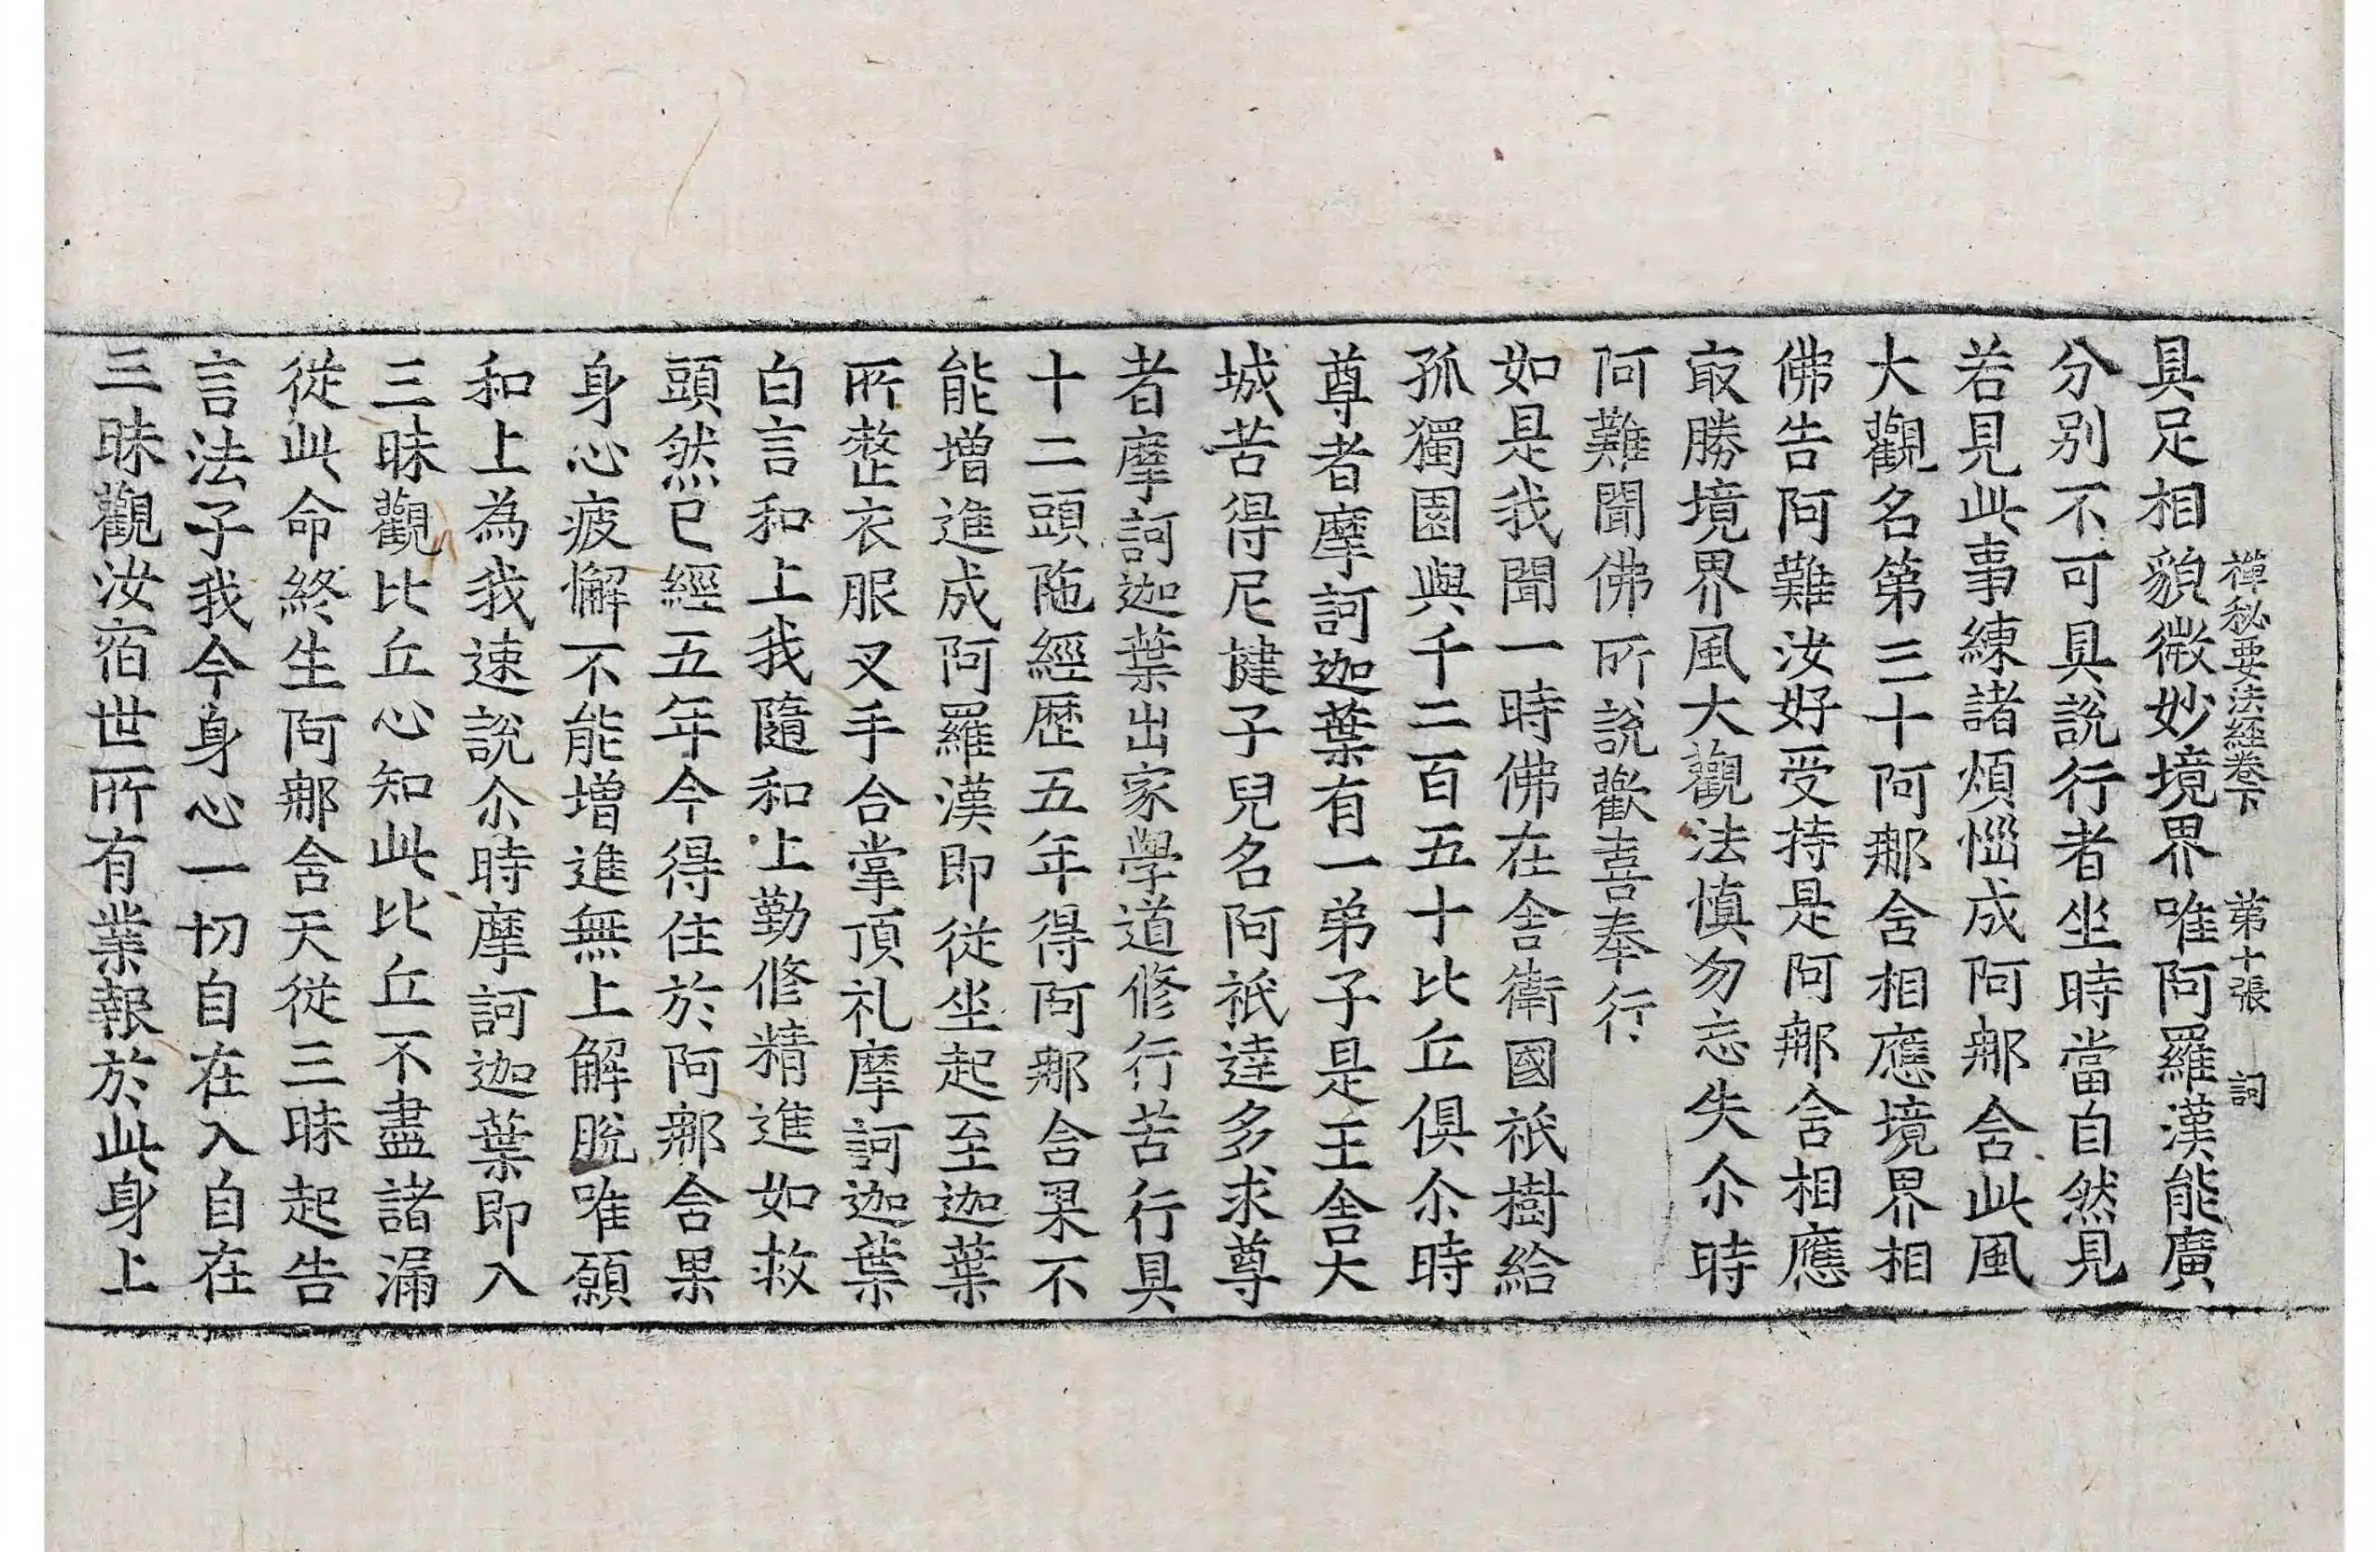 禪秘要法經卷下 第十張 詞
具足相貌微妙境界唯阿羅漢能廣
分別不可具說行者坐時當自然見
若見此事練諸煩惱成阿那含此風
大觀名第三十阿那含相應境界相
佛告阿難汝好受持是阿那含相應
㝡勝境界風大觀法慎勿忘失尒時
阿難聞佛所說歡喜奉行
如是我聞一時佛在舍衛國祇樹給
孤獨園與千二百五十比丘俱尒時
尊者摩訶迦葉有一弟子是王舍大
城苦得尼揵子兒名阿祇達多求尊
者摩訶迦葉出家學道修行苦行具
十二頭陁經歷五年得阿那含果不
能增進成阿羅漢即從坐起至迦葉
所整衣服叉手合掌頂礼摩訶迦葉
白言和上我隨和上勤修精進如救
頭然已經五年今得住於阿那含果
身心疲懈不能增進無上解脫唯願
和上為我速說尒時摩訶迦葉即入
三昧觀比丘心知此比丘不盡諸漏
從此命終生阿那含天從三昧起告
言法子我今身心一切自在入自在
三昧觀汝宿世所有業報於此身上